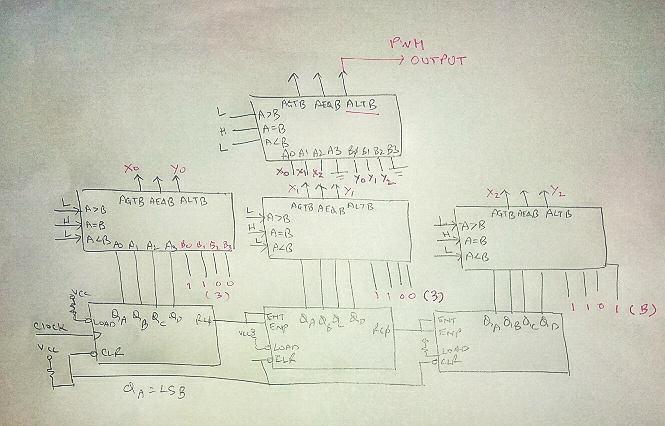 PWM
OUTPUT
AGTB AEQB ALTB
L A>B
H A=B
L A<B
A0 A1 A2 A3 B0 B1 B2 B3
X0 X1 X2 Y0 Y1 Y2
X0 Y0
AGTB AEQB ALTB
L A>B
H A=B
L A<B
A0 A1 A2 A3 B0 B1 B2 B3
1 1 0 0
(3)
X1 Y1
AGTB AEQB ALTB
L A>B
H A=B
L A<B
1 1 0 0 (3)
X2 Y2
AGTB AEQB ALTB
L A>B
H A=B
L A<B
1 1 0 1 (B)
VCC
LOAD QA QB QC QD
CLOCK
VCC
CLR
ENT QA QB QC QD
ENP RCO
VCC
LOAD
CLR
ENT
ENP QA QB QC QD
LOAD
CLR
QA = LSB